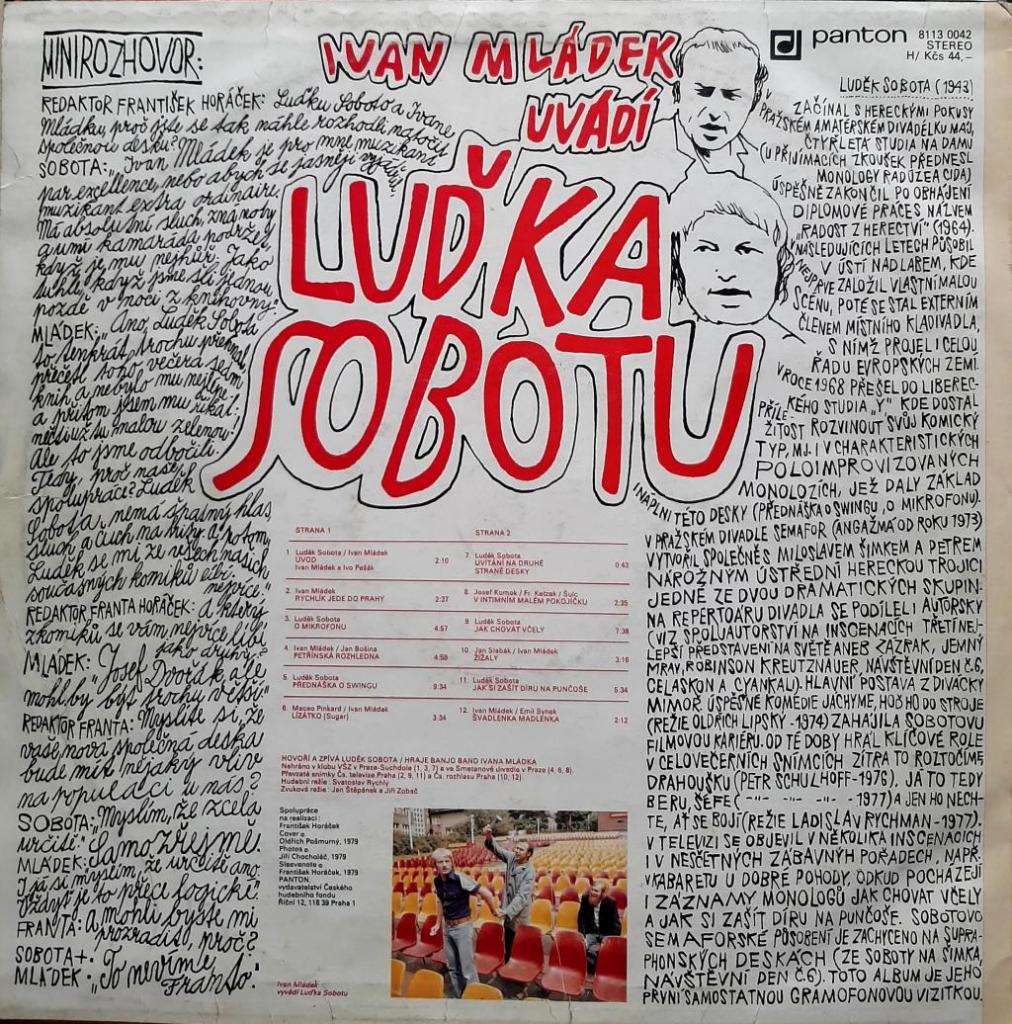 MINIROZHOVOR:
REDAKTOR FRANTIŠEK HORÁČEK: Luďku Soboto a Ivane
Mládku, proč jste se tak náhle rozhodli natočit
společnou desku?
SOBOTA: „Ivan Mládek je pro mne muzikant
par excellence, nebo abych se jasněji vyjádřil,
muzikant extra ordinaire.
Má absolutní sluch, zná noty
a umí kamaráda podržet,
když je mu nejhůř. Jako
tuhle, když jsme šli jednou
pozdě v noci z knihovny."
MLÁDEK: „Ano, Luděk Sobota
to tenkrát trochu přehnal,
přečetl toho večera sedm
knih a nebylo mu nejlépe
a přitom jsem mu říkal:
nečti už tu malou zelenou!
Ale to jsme odbočili.
Tedy, proč naše
spolupráce? Luděk
Sobota nemá špatný hlas,
sluch a čuch na hity a potom,
Luděk se mi ze všech našich
současných komiků líbí
nejvíce."
REDAKTOR FRANTA HORÁČEK: A který
z komiků se vám nejvíce líbí
jako druhý?
MLÁDEK: „Josef Dvořák, ale
mohl by být trochu větší."
REDAKTOR FRANTA: Myslíte si, že
vaše nová společná deska
bude mít nějaký vliv
na populaci u nás?
SOBOTA: „Myslím, že zcela
určitě. Samozřejmě."
MLÁDEK: „
I já si myslím, že určitě ano.
Vždyť je to přece logické."
FRANTA: A mohli byste mi
prozradit, proč?
SOBOTA+:
MLÁDEK: „To nevíme,
Franto."
IVAN MLÁDEK
UVÁDÍ
LUĎKA
SOBOTU
panton
8113 0042
STEREO
H/ Kčs 44,–
STRANA 1
1. Luděk Sobota / Ivan Mládek
ÚVOD 2:10
Ivan Mládek a Ivo Pešák
2. Ivan Mládek
RYCHLÍK JEDE DO PRAHY 2:27
3. Luděk Sobota
O MIKROFONU 4:57
4. Ivan Mládek / Jan Bušina
PETŘÍNSKÁ ROZHLEDNA 4:58
5. Luděk Sobota
PŘEDNÁŠKA O SWINGU 9:34
6. Maceo Pinkard / Ivan Mládek
LÍZÁTKO (Sugar) 3:34
STRANA 2
7. Luděk Sobota
UVÍTÁNÍ NA DRUHÉ
STRANĚ DESKY 0:43
8. Josef Kumok / Fr. Kelzek / Šulc
V INTIMNÍM MALÉM POKOJÍČKU 2:35
9. Luděk Sobota
JAK CHOVAT VČELY 7:38
10. Jan Slabák / Ivan Mládek
ŽÍŽALY 3:16
11. Luděk Sobota
JAK SI ZAŠÍT DÍRU NA PUNČOŠE 5:34
12. Ivan Mládek / Emil Synek
ŠVADLENKA MADLENKA 2:12
HOVOŘÍ A ZPÍVÁ LUDĚK SOBOTA / HRAJE BANJO BAND IVANA MLÁDKA
Nahráno v klubu VŠZ v Praze-Suchdole (1, 3, 7) a ve Smetanově divadle v Praze (4, 6, 8).
Převzaté snímky Čs. televize Praha (2, 9, 11) a Čs. rozhlasu Praha (10, 12)
Hudební režie: Svatoslav Rychlý
Zvuková režie: Jan Štěpánek a Jiří Zobač
Spolupráce
na realizaci:
František Horáček
Cover ©
Oldřich Pošmurný, 1979
Photos ©
Jiří Chocholáč, 1979
Sleevenote ©
František Horáček, 1979
PANTON,
vydavatelství Českého
hudebního fondu
Říční 12, 118 39 Praha 1
Ivan Mládek
vyvádí Luďka Sobotu
LUDĚK SOBOTA (1943)
ZAČÍNAL S HERECKÝMI POKUSY
V PRAŽSKÉM AMATÉRSKÉM DIVADÉLKU MAJ,
ČTYŘLETÁ STUDIA NA DAMU
(U PŘIJÍMACÍCH ZKOUŠEK PŘEDNESL
MONOLOGY RADÚZE A CIDA)
ÚSPĚŠNĚ ZAKONČIL PO OBHÁJENÍ
DIPLOMOVÉ PRÁCE S NÁZVEM
„RADOST Z HERECTVÍ" (1964).
V NÁSLEDUJÍCÍCH LETECH PŮSOBIL
V ÚSTÍ NAD LABEM, KDE
NEJPRVE ZALOŽIL VLASTNÍ MALOU
SCÉNU, POTÉ SE STAL EXTERNÍM
ČLENEM MÍSTNÍHO KLADIVADLA,
S NÍMŽ PROJEL I CELOU
ŘADU EVROPSKÝCH ZEMÍ.
V ROCE 1968 PŘEŠEL DO LIBEREC-
KÉHO STUDIA „Y" KDE DOSTAL
PŘÍLE-
ŽITOST ROZVINOUT SVŮJ KOMICKÝ
TYP, MJ. I V CHARAKTERISTICKÝCH
POLOIMPROVIZOVANÝCH
MONOLOZÍCH, JEŽ DALY ZÁKLAD
I NÁPLNI TÉTO DESKY (PŘEDNÁŠKA O SWINGU, O MIKROFONU).
V PRAŽSKÉM DIVADLE SEMAFOR (ANGAŽMÁ OD ROKU 1973)
VYTVOŘIL SPOLEČNĚ S MILOSLAVEM ŠIMKEM A PETREM
NÁROŽNÝM ÚSTŘEDNÍ HERECKOU TROJICI
JEDNÉ ZE DVOU DRAMATICKÝCH SKUPIN.
NA REPERTOÁRU DIVADLA SE PODÍLEL I AUTORSKY
(VIZ SPOLUAUTORSTVÍ NA INSCENACÍCH TŘETÍ NEJ-
LEPŠÍ PŘEDSTAVENÍ NA SVĚTĚ ANEB ZÁZRAK, JEMNÝ
MRAV, ROBINSON KREUTZNAUER, NÁVŠTĚVNÍ DEN Č.6,
ČELASKON A CYANKALI). HLAVNÍ POSTAVA Z DIVÁCKY
MIMOŘ. ÚSPĚŠNÉ KOMEDIE JÁCHYME, HOĎ HO DO STROJE
(REŽIE OLDŘICH LIPSKÝ - 1974) ZAHÁJILA SOBOTOVU
FILMOVOU KARIÉRU. OD TÉ DOBY HRÁL KLÍČOVÉ ROLE
V CELOVEČERNÍCH SNÍMCÍCH ZÍTRA TO ROZTOČÍME,
DRAHOUŠKU (PETR SCHULHOFF - 1976), JÁ TO TEDY
BERU, ŠÉFE (–"– –"– –"– 1977) A JEN HO NECH-
TE, AŤ SE BOJÍ (REŽIE LADISLAV RYCHMAN - 1977).
V TELEVIZI SE OBJEVIL V NĚKOLIKA INSCENACÍCH
I V NESČETNÝCH ZÁBAVNÝH POŘADECH, NAPŘ.
V KABARETU U DOBRÉ POHODY, ODKUD POCHÁZEJÍ
I ZÁZNAMY MONOLOGŮ JAK CHOVAT VČELY
A JAK SI ZAŠÍT DÍRU NA PUNČOŠE. SOBOTOVO
SEMAFORSKÉ PŮSOBENÍ JE ZACHYCENO NA SUPRA-
PHONSKÝCH DESKÁCH (ZE SOBOTY NA ŠIMKA,
NÁVŠTĚVNÍ DEN Č.6). TOTO ALBUM JE JEHO
PRVNÍ SAMOSTATNOU GRAMOFONOVOU VIZITKOU.